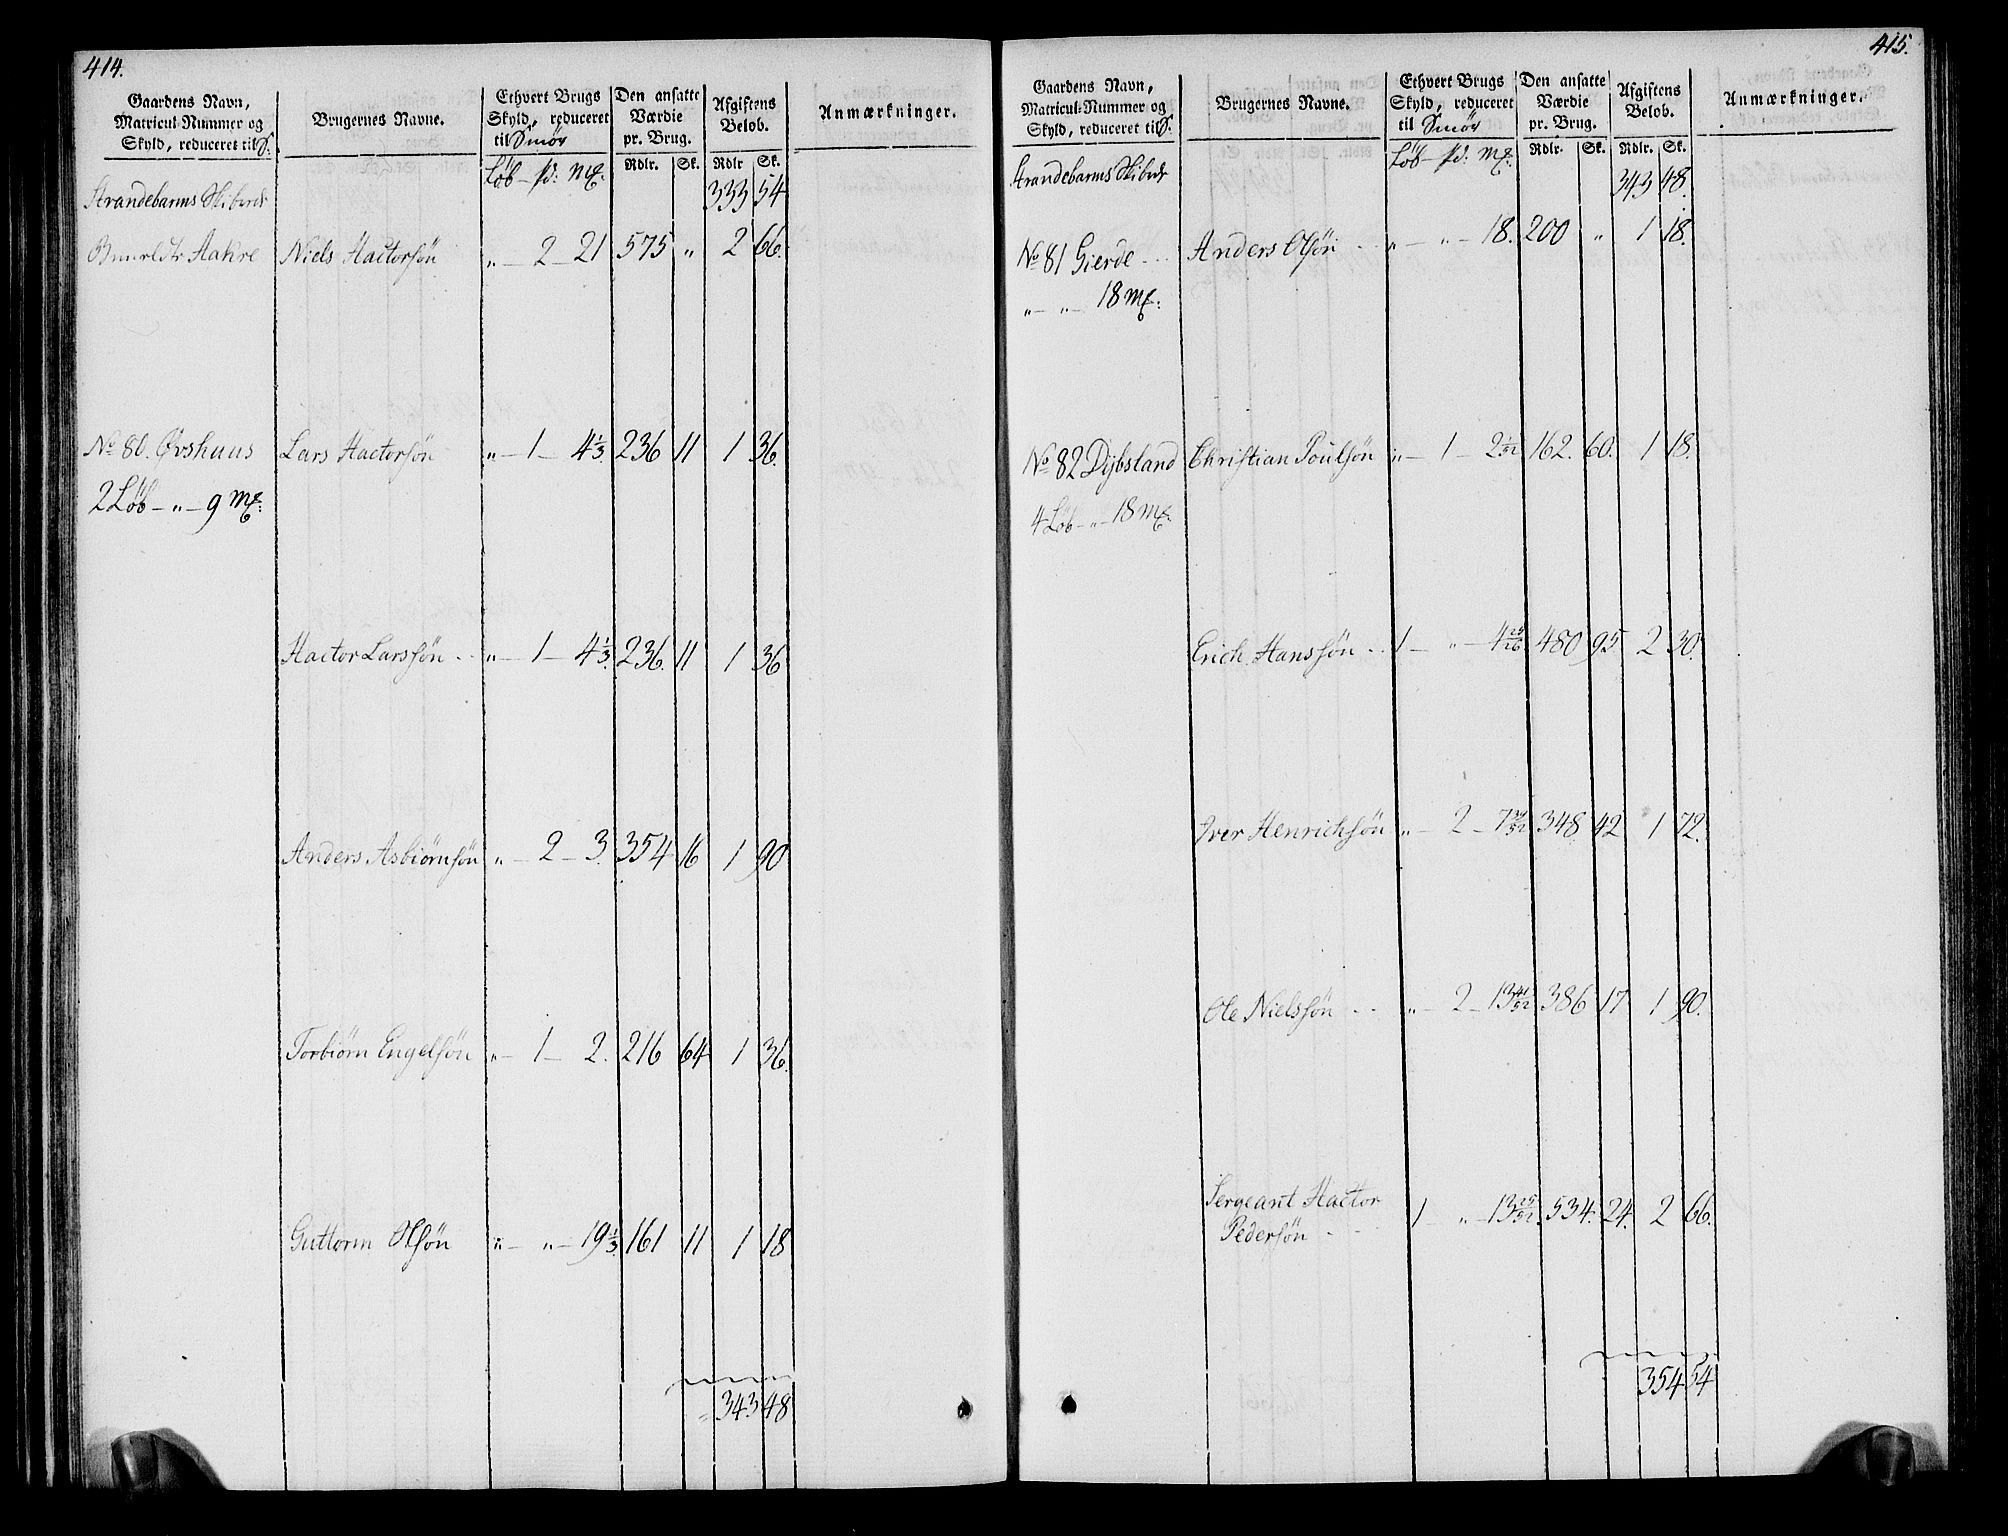 414.
Gaardens Navn, Matricul-Nummer og Skyld, reduceret til S: | Brugernes Navne. | Ethvert Brugs Skyld, reduceret til Smör | Den ansatte Værdie pr. Brug. | Afgiftens Beløb. | Anmærkninger.
Løb – pd: m&: | Rdlr. | Sk. | Rdlr | Sk.
Strandebarms Skibrede 333 54
Aakre Niels Hactorsön „ – 2 – 21 575 „ 2 66.
No 80. Övshuus Lars Hactorsön „ – 1 – 4 1/3 236 11 1 36.
2 Löb – „ – 9 m&:
Hactor Larssön „ – 1 – 4 1/3. 236. 11 1 36
Anders Asbiörnsön „ – 2 – 3. 354 16 1 90
Torbiörn Engelsön „ – 1 – 2. 216 64 1 36.
Guttorm Olsön „ – „ – 19 1/3. 161 11 1 18
343 48
415.
Gaardens Navn, Matricul-Nummer og Skyld, reduceret til S: | Brugernes Navne. | Ethvert Brugs Skyld, reduceret til Smör | Den ansatte Værdie pr. Brug. | Afgiftens Beløb. | Anmærkninger.
Løb – pd: m&: | Rdlr. | Sk. | Rdlr. | Sk.
Strandebarms Skibrede 343 48.
No 81 Gierde Anders Olsön „ – „ – 18. 200 „ 1 18.
„ – „ – 18 m&:
No 82 Dijbsland Christian Poulsön „ – 1 – 2 1/52 162. 60. 1 18.
4 Löb – „ – 18 m&:
Erich Hanssön 1 – „ – 4 25/26 480 95 2 30.
Iver Henrichsön „ – 2 – 7 /52 348 42 1 72.
Ole Nielssön „ – 2 – 13 41/52 386 17 1 90.
Sergeant Hactor
Pedersön 1 – „ – 13 25/52. 534. 24. 2 66.
354 54